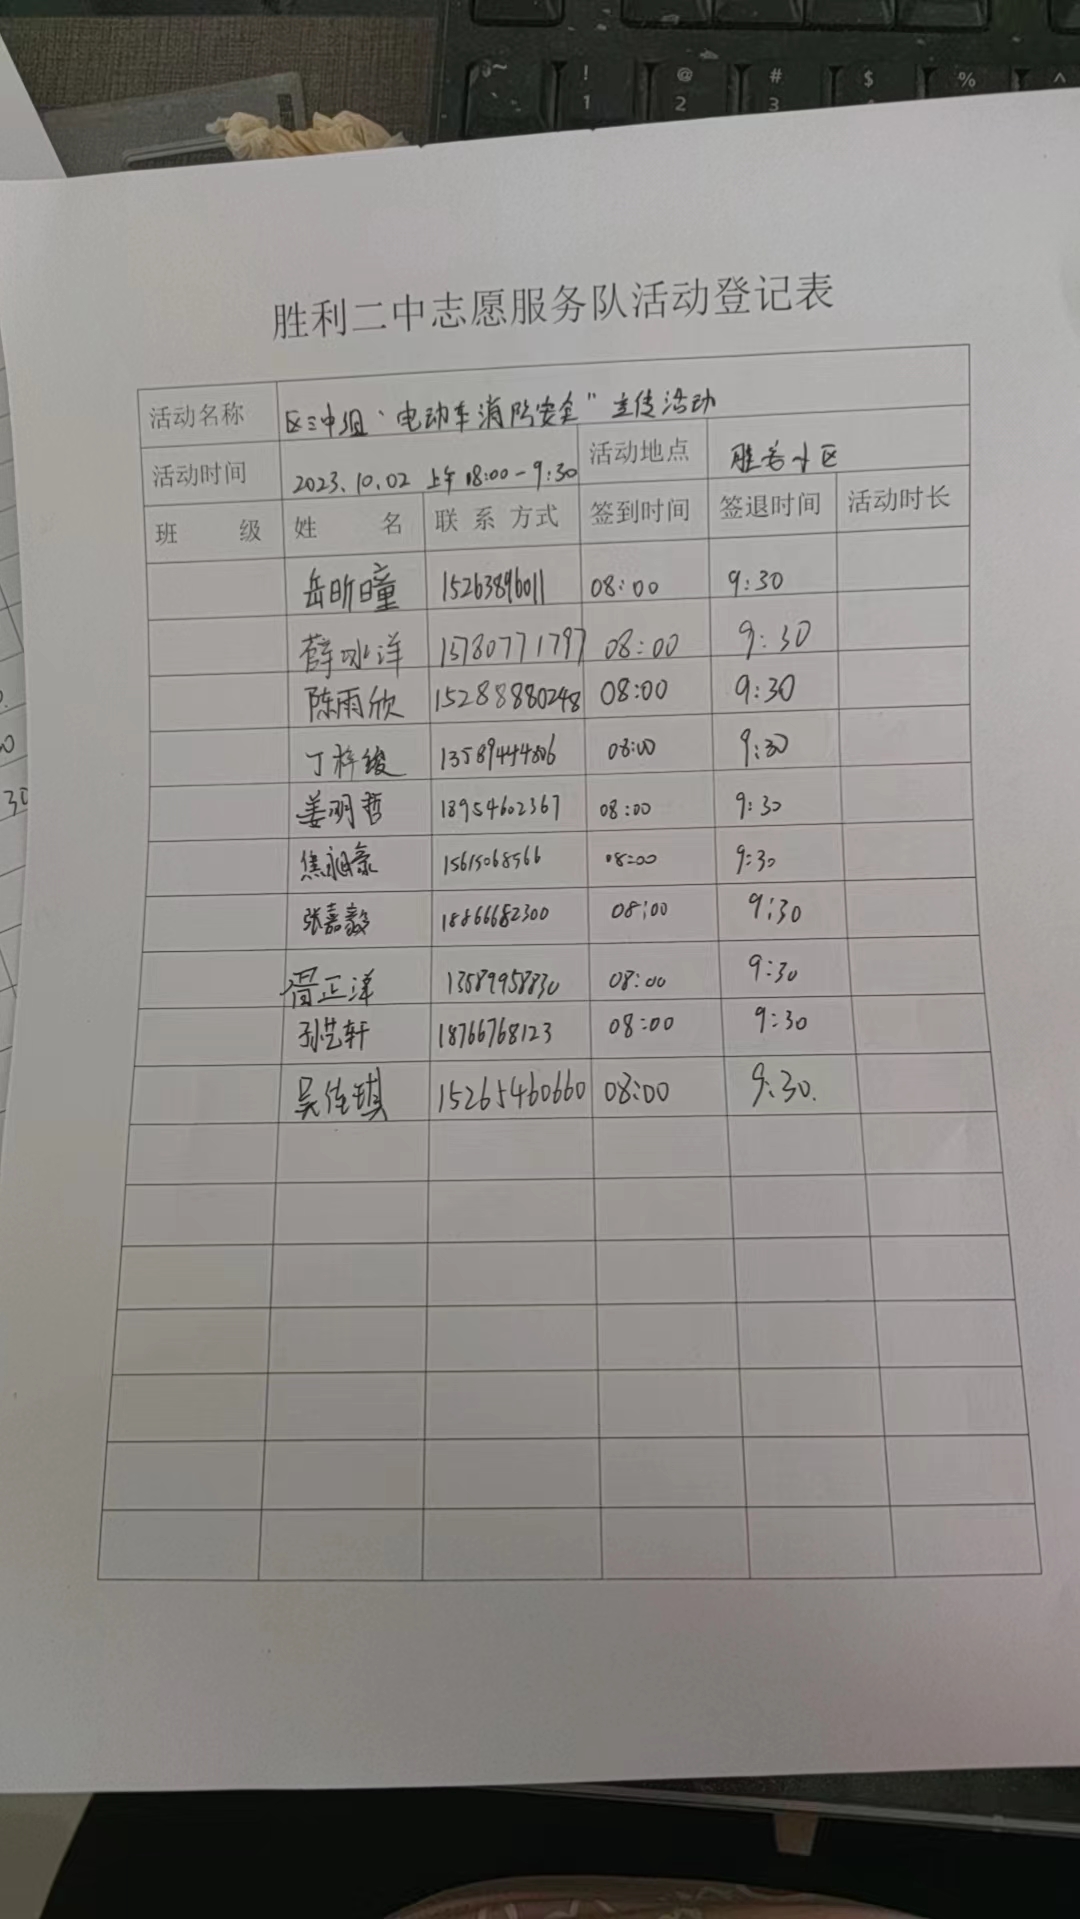 ~
! @ # $ % ^
1 2 3
胜利二中志愿服务队活动登记表
活动名称 区三中组“电动车消防安全”宣传活动
活动时间 2023.10.02 上午 08:00-9:30 活动地点 胜苑小区
班 级 姓 名 联系方式 签到时间 签退时间 活动时长
岳昕曈 15263896011 08:00 9:30
薛冰洋 15780771797 08:00 9:30
陈雨欣 15288880248 08:00 9:30
丁梓峻 13589444806 08:00 9:30
姜明哲 18954602367 08:00 9:30
焦昶豪 15615068566 08:00 9:30
张嘉毅 18866682300 08:00 9:30
正洋 13589958830 08:00 9:30
孙艺轩 18766768123 08:00 9:30
吴佳琪 15265460660 08:00 9:30.